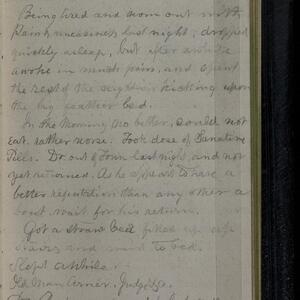 Being tired and worn out with
Pain & uneasiness last night, dropped
quickly asleep, but after awhile
awoke in much pain, and spent
the rest of the night in kicking upon
the big feather bed.
In the Morning no better, could not
Eat, rather worse. Took dose of Sanative
Pills. Dr. out of Town last night, and not
yet returned. As he appears to have a
better reputation than any other a
bout, wait for his return.
Got a straw bed fixed up
stairs, and went to bed.
Slept awhile.
Old Man